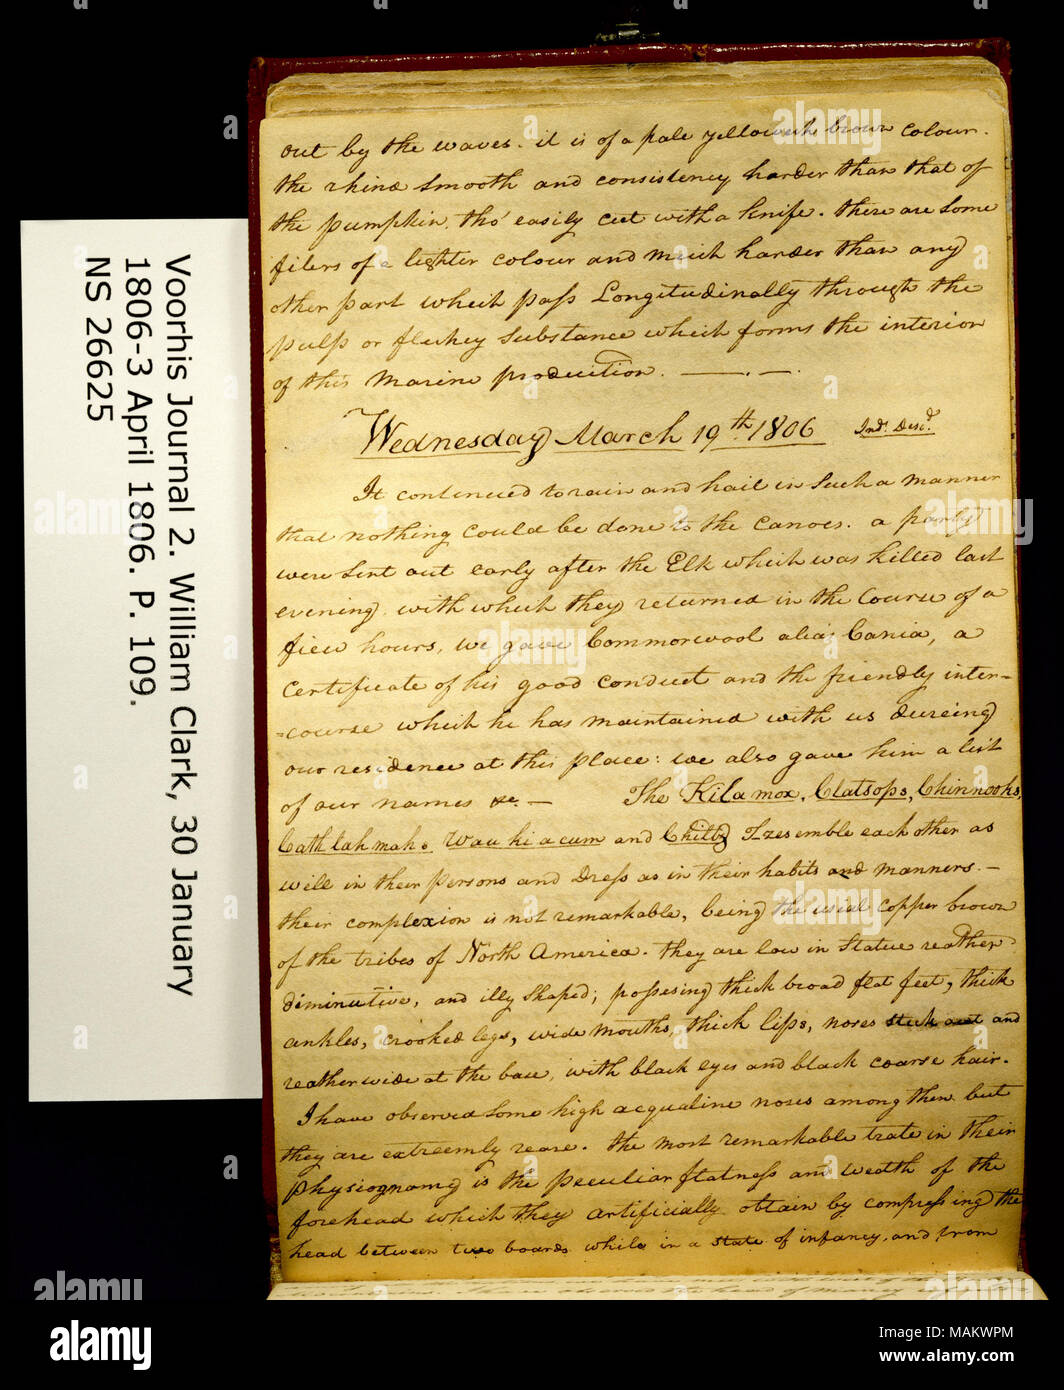 out by the waves. it is of a pale yellowish brown colour.
the rhind smooth and consistency harder than that of
the pumpkin, tho' easily cut with a knife. there are Some
filers of a lighter colour and much harder than any
other part which pass Longitudinally through the
pulp or fleshey substance which forms the interior
of this marine production. — . — .
Wednesday March 19th. 1806 Inds. Discd.
It continued to rain and hail in Such a manner
that nothing Could be done to the Canoes. a party
were Sent out early after the Elk which was killed last
evening. with which they returned in the Course of a
fiew hours, we gave Commorwool alias Cania, a
Certificate of his good conduct and the friendly inter-
=course which he has maintained with us dureing
our residence at this place: we also gave him a list
of our names &c. — The Kilamox, Clatsops, Chinnooks,
Cathlahmahs Wau ki a cum and Chiltz I resemble each other as
well in their persons and Dress as in their habits and manners. —
their complexion is not remarkable, being the usial Copper brown
of the tribes of North America. they are low in Statue reather
diminutive, and illy Shaped; possesing thick broad flat feet, thick
ankles, crooked legs, wide mouths, thick lips, noses stuk out and
reather wide at the base, with black eyes and black coarse hair.
I have observed Some high acqualine noses among them but
they are extreemly reare. the most remarkable trate in their
physiognamy is the peculiar flatness and wedth of the
forehead which they artificially obtain by compressing the
head between two boards while in a state of infancy, and from
Voorhis Journal 2. William Clark, 30 January
1806-3 April 1806. P. 109.
NS 26625
alamy
Image ID: MAKWPM
www.alamy.com